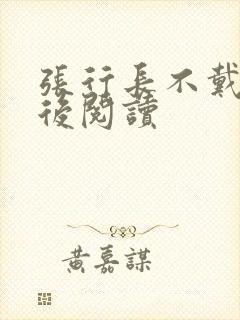 張行長不戴
後閱讀
黃嘉謀